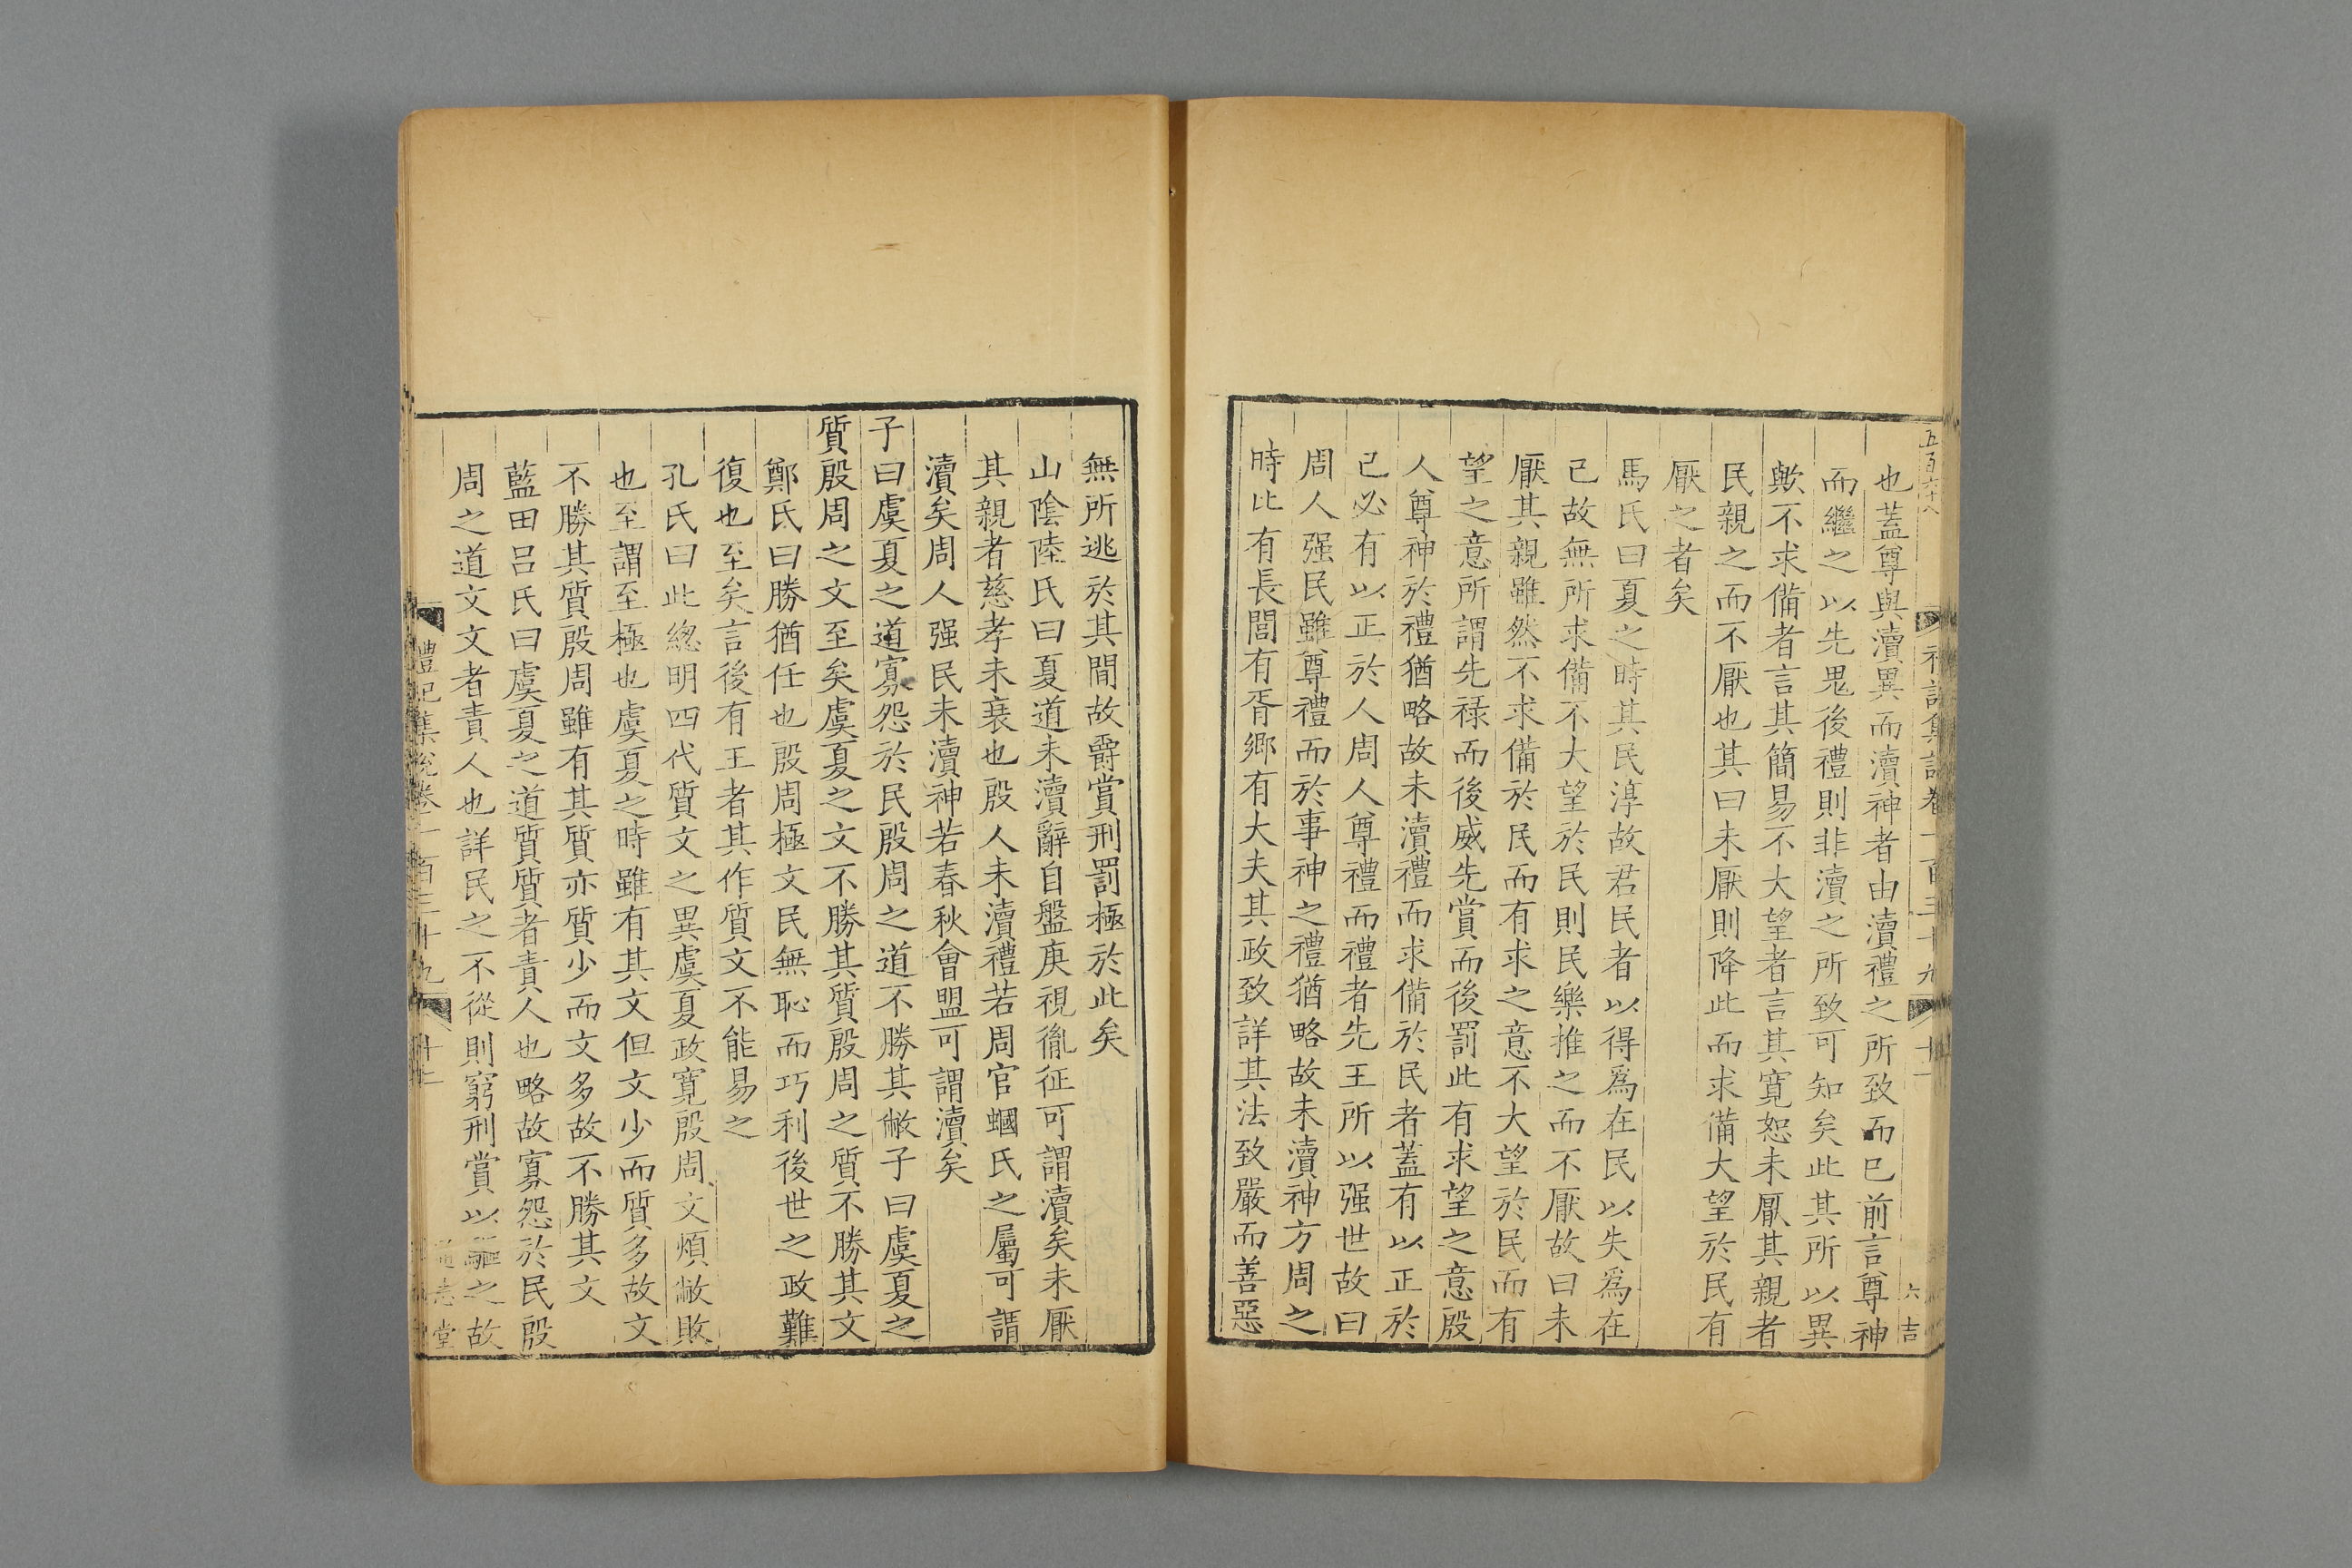 五百六十八
禮記集說卷一百三十九
十一
六吉
也蓋尊與瀆異而瀆神者由瀆禮之所致而已前言尊神
而繼之以先鬼後禮則非瀆之所致可知矣此其所以異
歟不求備者言其簡易不大望者言其寬恕未厭其親者
民親之而不厭也其曰未厭則降此而求備大望於民有
厭之者矣
馬氏曰夏之時其民淳故君民者以得爲在民以失爲在
己故無所求備不大望於民則民樂推之而不厭故曰未
厭其親雖然不求備於民而有求之意不大望於民而有
望之意所謂先祿而後威先賞而後罰此有求望之意殷
人尊神於禮猶略故未瀆禮而求備於民者蓋有以正於
己必有以正於人周人尊禮而禮者先王所以强世故曰
周人强民雖尊禮而於事神之禮猶略故未瀆神方周之
時比有長閭有胥鄉有大夫其政致詳其法致嚴而善惡
無所逃於其間故爵賞刑罰極於此矣
山陰陸氏曰夏道未瀆辭自盤庚視胤征可謂瀆矣未厭
其親者慈孝未衰也殷人未瀆禮若周官蟈氏之屬可謂
瀆矣周人强民未瀆神若春秋會盟可謂瀆矣
子曰虞夏之道寡怨於民殷周之道不勝其敝子曰虞夏之
質殷周之文至矣虞夏之文不勝其質殷周之質不勝其文
鄭氏曰勝猶任也殷周極文民無恥而巧利後世之政難
復也至矣言後有王者其作質文不能易之
孔氏曰此總明四代質文之異虞夏政寬殷周文煩敝敗
也至謂至極也虞夏之時雖有其文但文少而質多故文
不勝其質殷周雖有其質亦質少而文多故不勝其文
藍田呂氏曰虞夏之道質質者責人也略故寡怨於民殷
周之道文文者責人也詳民之不從則窮刑賞以驅之故
禮記集說卷一百三十九
十二
通志堂